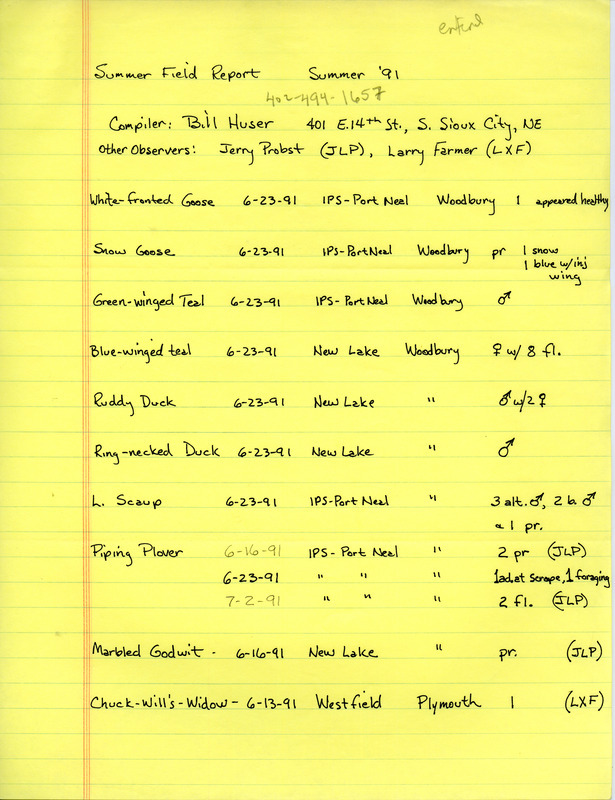 entered
Summer Field Report Summer '91
402-494-1657
Compiler: Bill Huser 401 E. 14th St., S. Sioux City, NE
Other Observers: Jerry Probst (JLP), Larry Farmer (LXF)
White-fronted Goose 6-23-91 IPS-Port Neal Woodbury 1 appeared healthy
Snow Goose 6-23-91 IPS-Port Neal Woodbury pr 1 snow
1 blue w/inj
wing
Green-winged Teal 6-23-91 IPS-Port Neal Woodbury ♂
Blue-winged teal 6-23-91 New Lake Woodbury ♀ w/ 8 fl.
Ruddy Duck 6-23-91 New Lake " ♂ w/2 ♀
Ring-necked Duck 6-23-91 New Lake " ♂
L. Scaup 6-23-91 IPS-Port Neal " 3 alt. ♂, 2 b. ♂
1 pr.
Piping Plover 6-16-91 IPS-Port Neal " 2 pr (JLP)
6-23-91 " " " 1 ad. at scrape, 1 foraging
7-2-91 " " " 2 fl. (JLP)
Marbled Godwit - 6-16-91 New Lake " pr. (JLP)
Chuck-Will's-Widow - 6-13-91 Westfield Plymouth 1 (LXF)